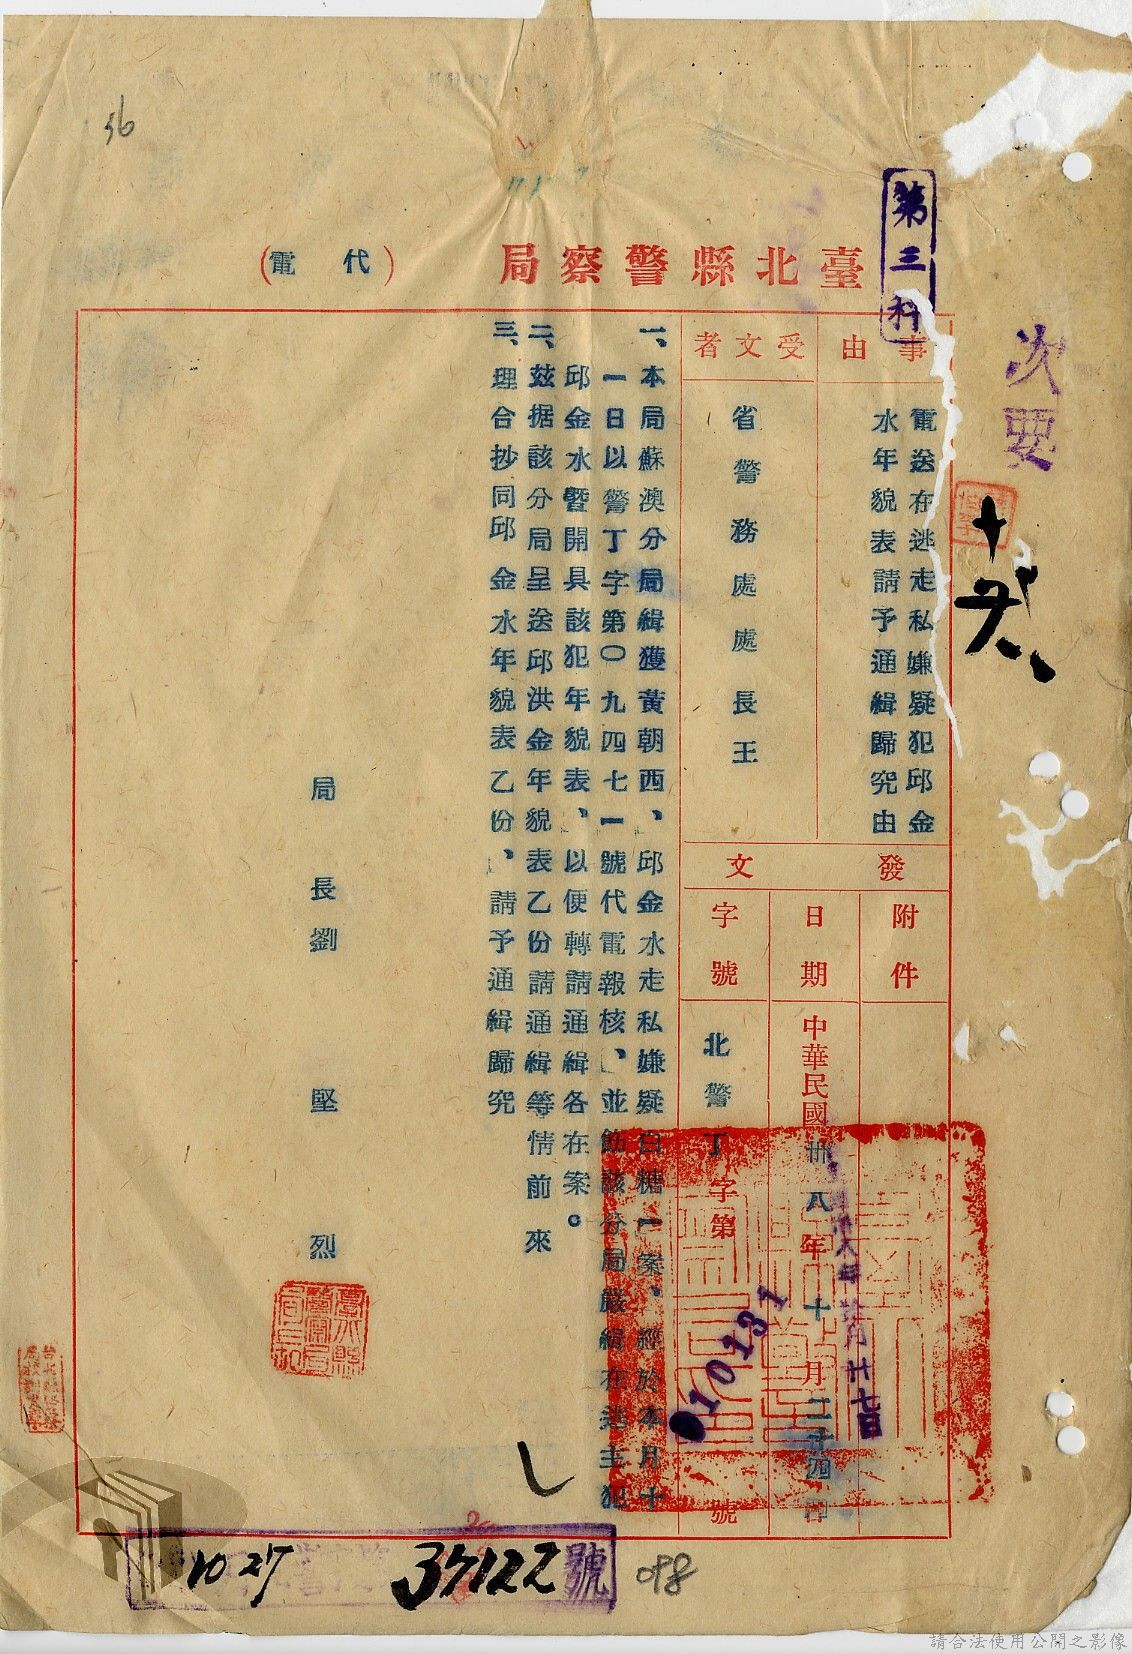 36
第三科
次要
臺北縣警察局
(代電)
事由
電送在逃走私嫌疑犯邱金
水年貌表請予通緝歸究由
受文者
省警務處處長王
發文
附件
日期
中華民國卅八年十月二十四日
字號
北警丁字第010131號
一、本局蘇澳分局緝獲黃朝西、邱金水走私嫌疑白糖一案、經於本月十
一日以警丁字第〇九四七一號代電報核、並飭該分局嚴緝在逃主犯
邱金水暨開具該犯年貌表、以便轉請通緝各在案。
二、玆据該分局呈送邱洪金年貌表乙份請通緝等情前來
三、理合抄同邱金水年貌表乙份、請予通緝歸究
局長劉堅烈
10 27
37122號
098
請合法使用公開之影像